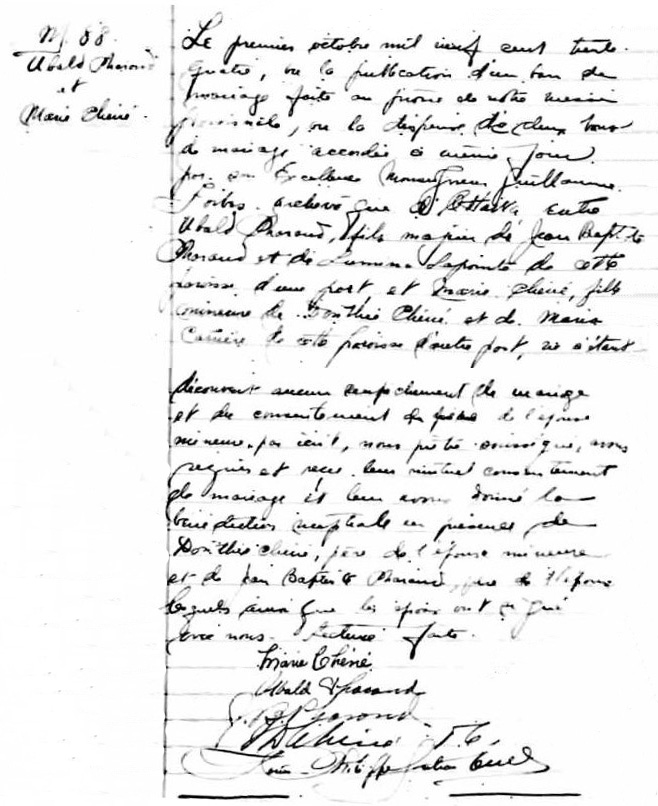 M. 88.
Ubald Pharand
et
Marie Chéné.
Le premier octobre mil neuf cent trente-
quatre, vu la publication d'un ban de
mariage faite au prône de notre messe
paroissiale, vu la dispense de deux bans
de mariage accordée ce même jour
par son Excellence Monseigneur Guillaume
Forbes archevêque d'Ottawa, entre
Ubald Pharand, fils majeur de Jean Baptiste
Pharand et de Lumina Lapointe de cette
paroisse d'une part, et Marie Chéné, fille
mineure de Donthié Chéné et de Maria
Carrière de cette paroisse d'autre part, ne s'étant
découvert aucun empêchement de mariage
et du consentement du père de l'épouse
mineure par écrit, nous prêtre soussigné, avons
requis et reçu leur mutuel consentement
de mariage et leur avons donné la
bénédiction nuptiale en présence de
Donthié Chéné, père de l'épouse mineure
et de Jean Baptiste Pharand, père de l'époux
lesquels ainsi que les époux ont signé
avec nous. Lecture faite.
Marie Chéné
Ubald Pharand
J. B. Pharand
D Chéné
Philippe